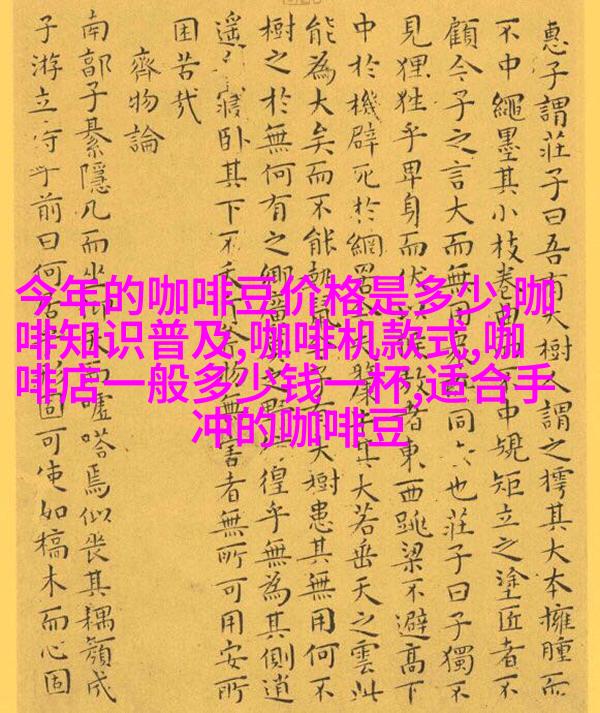 惠子謂莊子曰吾有大樹人謂之樗其大本擁腫而
不中繩墨其小枝卷曲不中規矩立之塗匠者不
顧今子之言大而無用同也莊子曰子獨不
見狸狌乎卑身而伏者東西跳梁不避高下
中於機辟死於網罟其大若垂天之雲此
能為大矣而不能執鼠大樹患其無用何不
樹之於無何有之鄉野徨乎無為其側逍
遙寢卧其下不物無害者無所可用安所
困苦哉
齊物論
南郭子綦隱几而坐仰天而噓嗒焉似喪其耦顏成
子游立侍乎前曰何居固可使如槁木而心固
今年的咖啡豆价格是多少,咖
啡知识普及,咖啡机款式,咖
啡店一般多少钱一杯,适合手
冲的咖啡豆